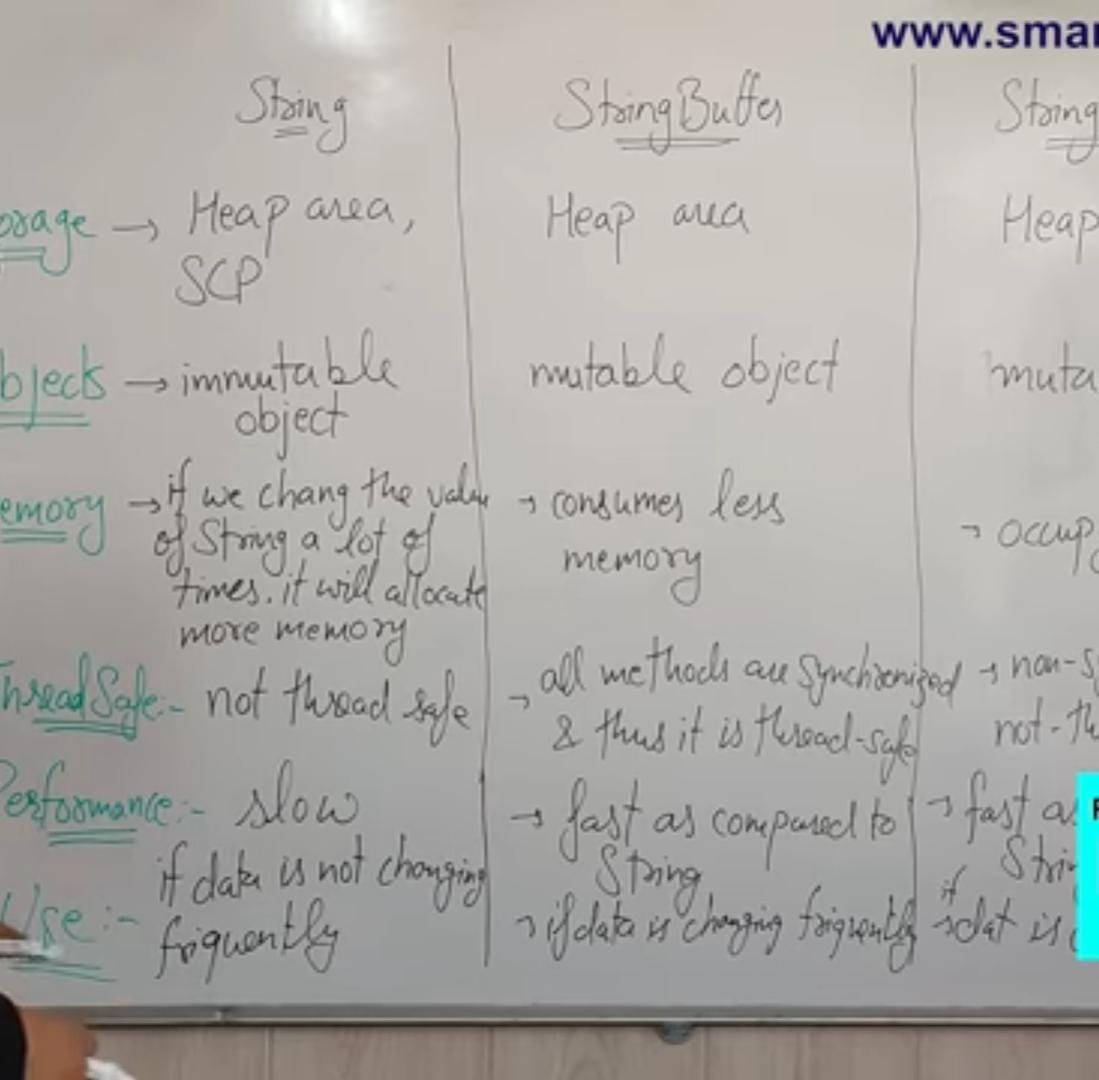 www.smar
String
StringBuffer
String
orage → Heap area,
SCP
Heap area
Heap
bjects → immutable
object
mutable object
muta
emory → if we chang the value
of String a lot of
times. it will allocate
more memory
→ consumes less
memory
→ occup
ThreadSafe:- not thread safe
→ all methods are synchronized
& thus it is thread-safe
→ non-s
not-th
Performance:- slow
→ fast as compared to
String
→ fast as
Strin
Use:- if data is not changing
friquently
→ if data is changing friquently
if
→ dat is